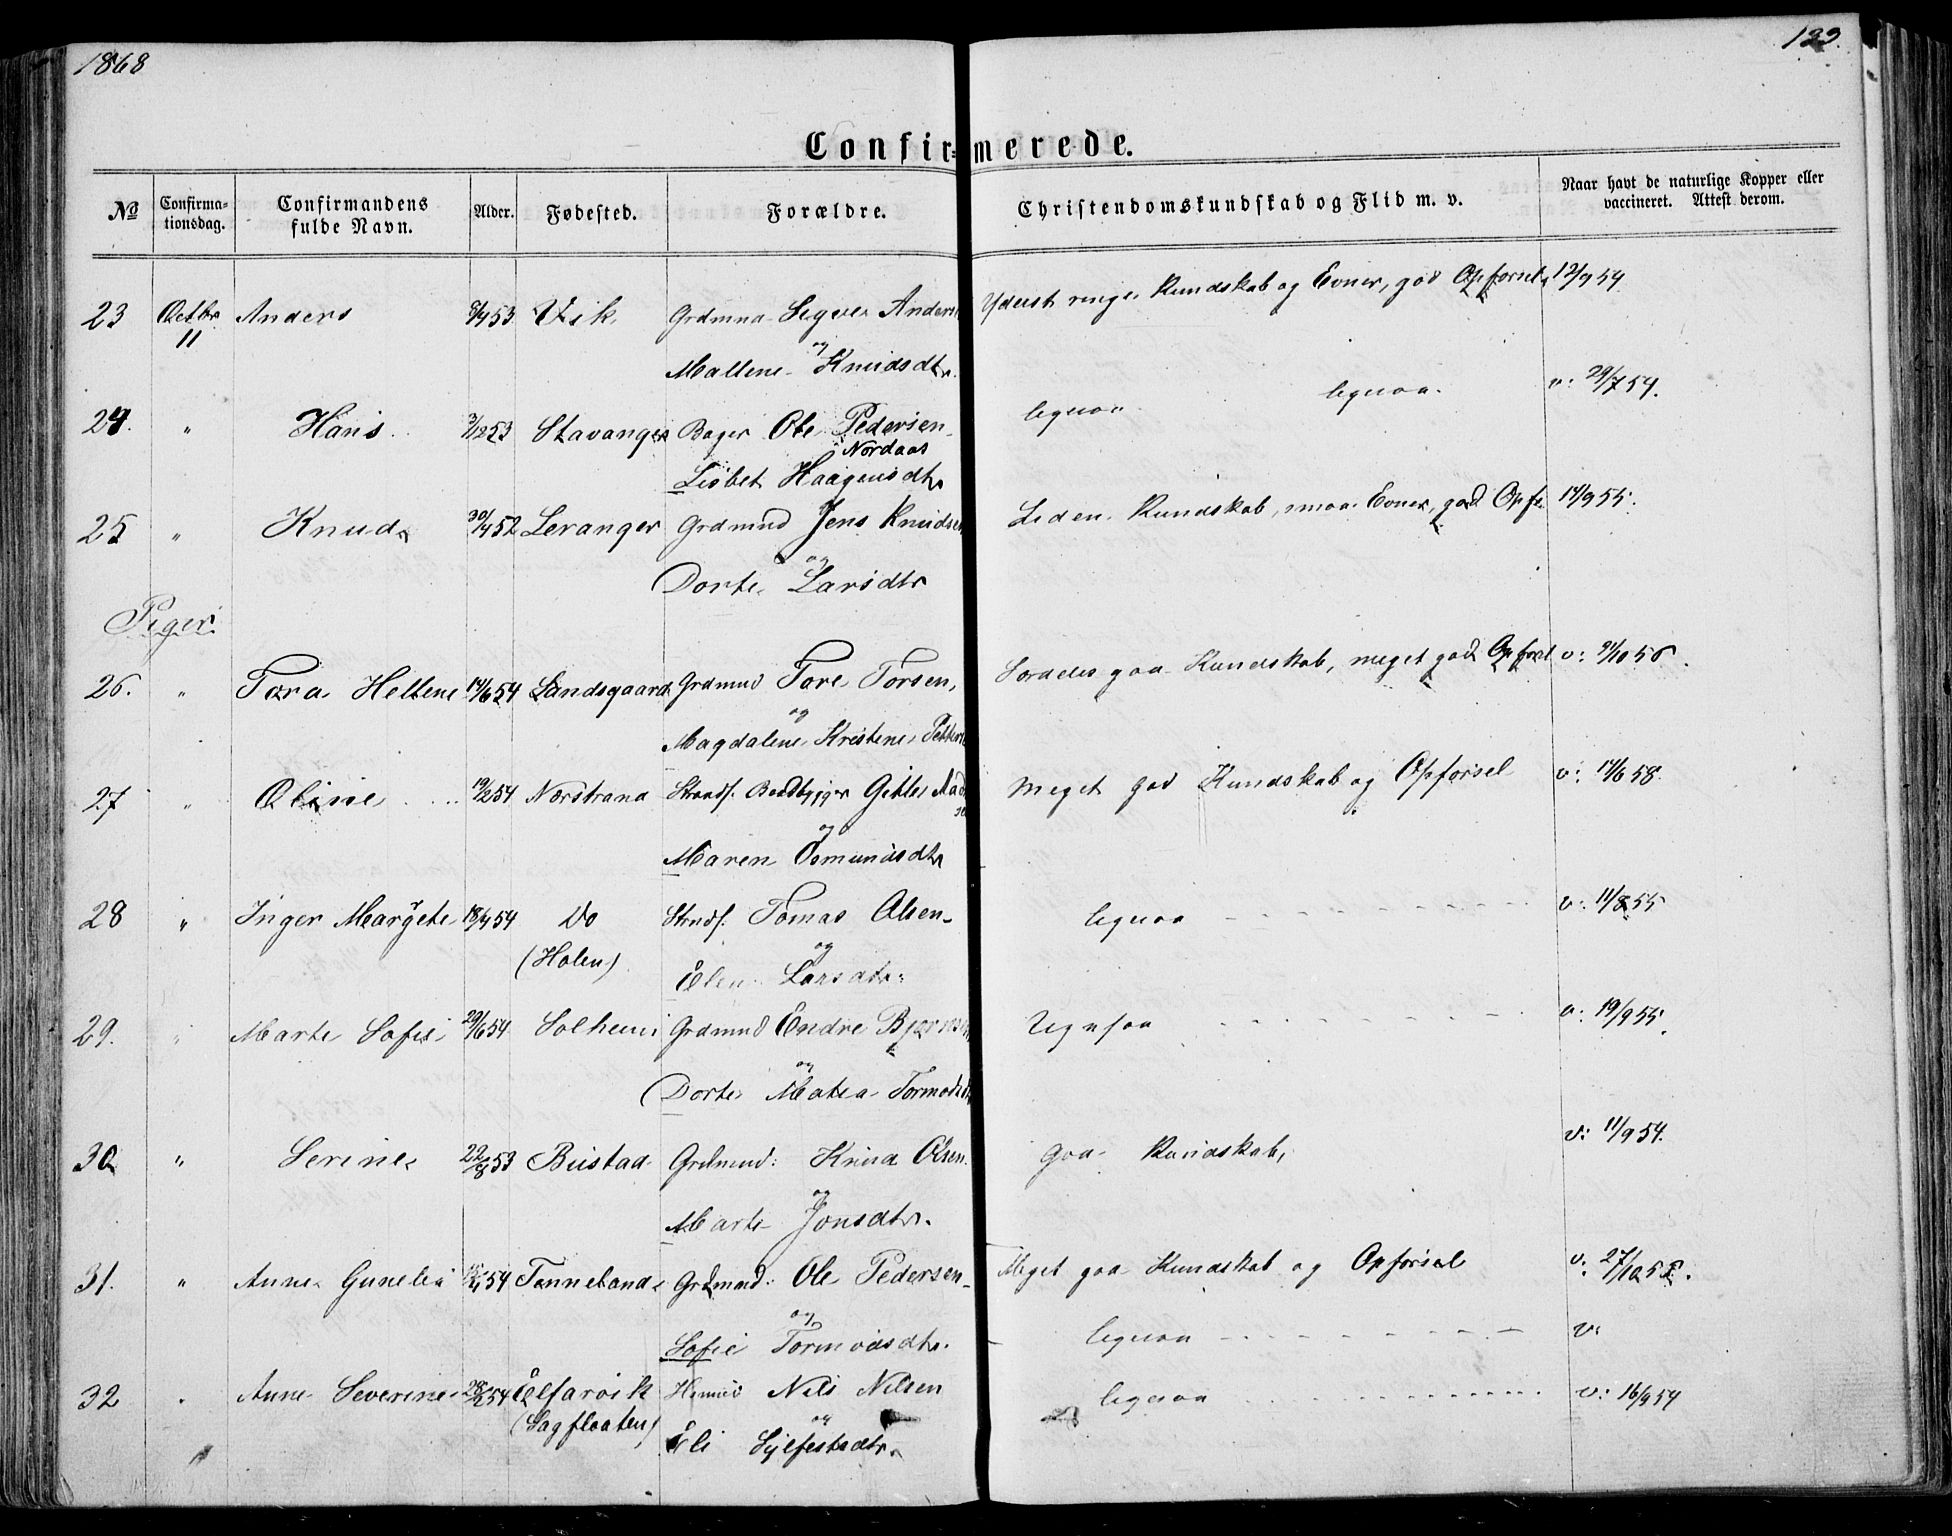 1868
123.
Confir= merede.
№ Confirma-tionsdag. Confirmandens fulde Navn. Alder. Fødested. Forældre. Christendomskundskab og Flid m. v. Naar havt de naturlige Kopper eller vaccineret. Attest derom.
23 Octbr 11 Anders 53 Vik Grdmnd Sigve Anders Yderst ringe Kundskab og Evner, god Opførsel 12/9 54
og
Mallene Knudsdtr.
24. " Hans 3/12 53 Stavanger Bager Ole Pedersen ligesaa ligesaa. v: 29/7 54.
Nordaas
Lisbet Haagensdtr
25 " Knud 30/4 52 Leranger Grdmnd Jens Knudsen Liden Kundskab, smaa Evner, god Opf. 14/9 55.
og
Dorte Larsdtr
Piger.
26. " Tora Hellene 14/6 54 Landsgaard Grdmnd Tore Torsen, Kundskab, meget god Opførsel v:
og
Magdalene Kristene
27 " Oline 19/2 54 Norstrand Strands. Baadbygger Gitle Meget god Kundskab og Opførsel v: 14/6 58.
og
Maren Osmundsdtr
28 " Inger Margrete 18/4 54 Do Strnds. Tomas Olsen ligesaa v: 11/8 55
(Holen) og
Elen Larsdtr.
29. " Marte Sofie 29/6 54 Solheim Grdmnd Endre Bjørnsen ligesaa v: 19/9 55.
og
Dorte Matea Tormodsd
30 " Serine 22/8 53 Bustad Grdmnd: Knud Olsen god Kundskab, v: 11/9 54.
og
Marte Jonsdtr.
31. " Anne Gunelia 54 Tanneland Grdmnd: Ole Pedersen Meget god Kundskab og Opførsel v: 27/10 55.
og
Sofie Tormodsdtr. ligesaa v:
32 " Anne Severine 28/2 54 Elfarvik Husmd Nils Nilsen ligesaa v: 16/9 54
(Sagflaaten) og
Eli Sylfestsdtr.